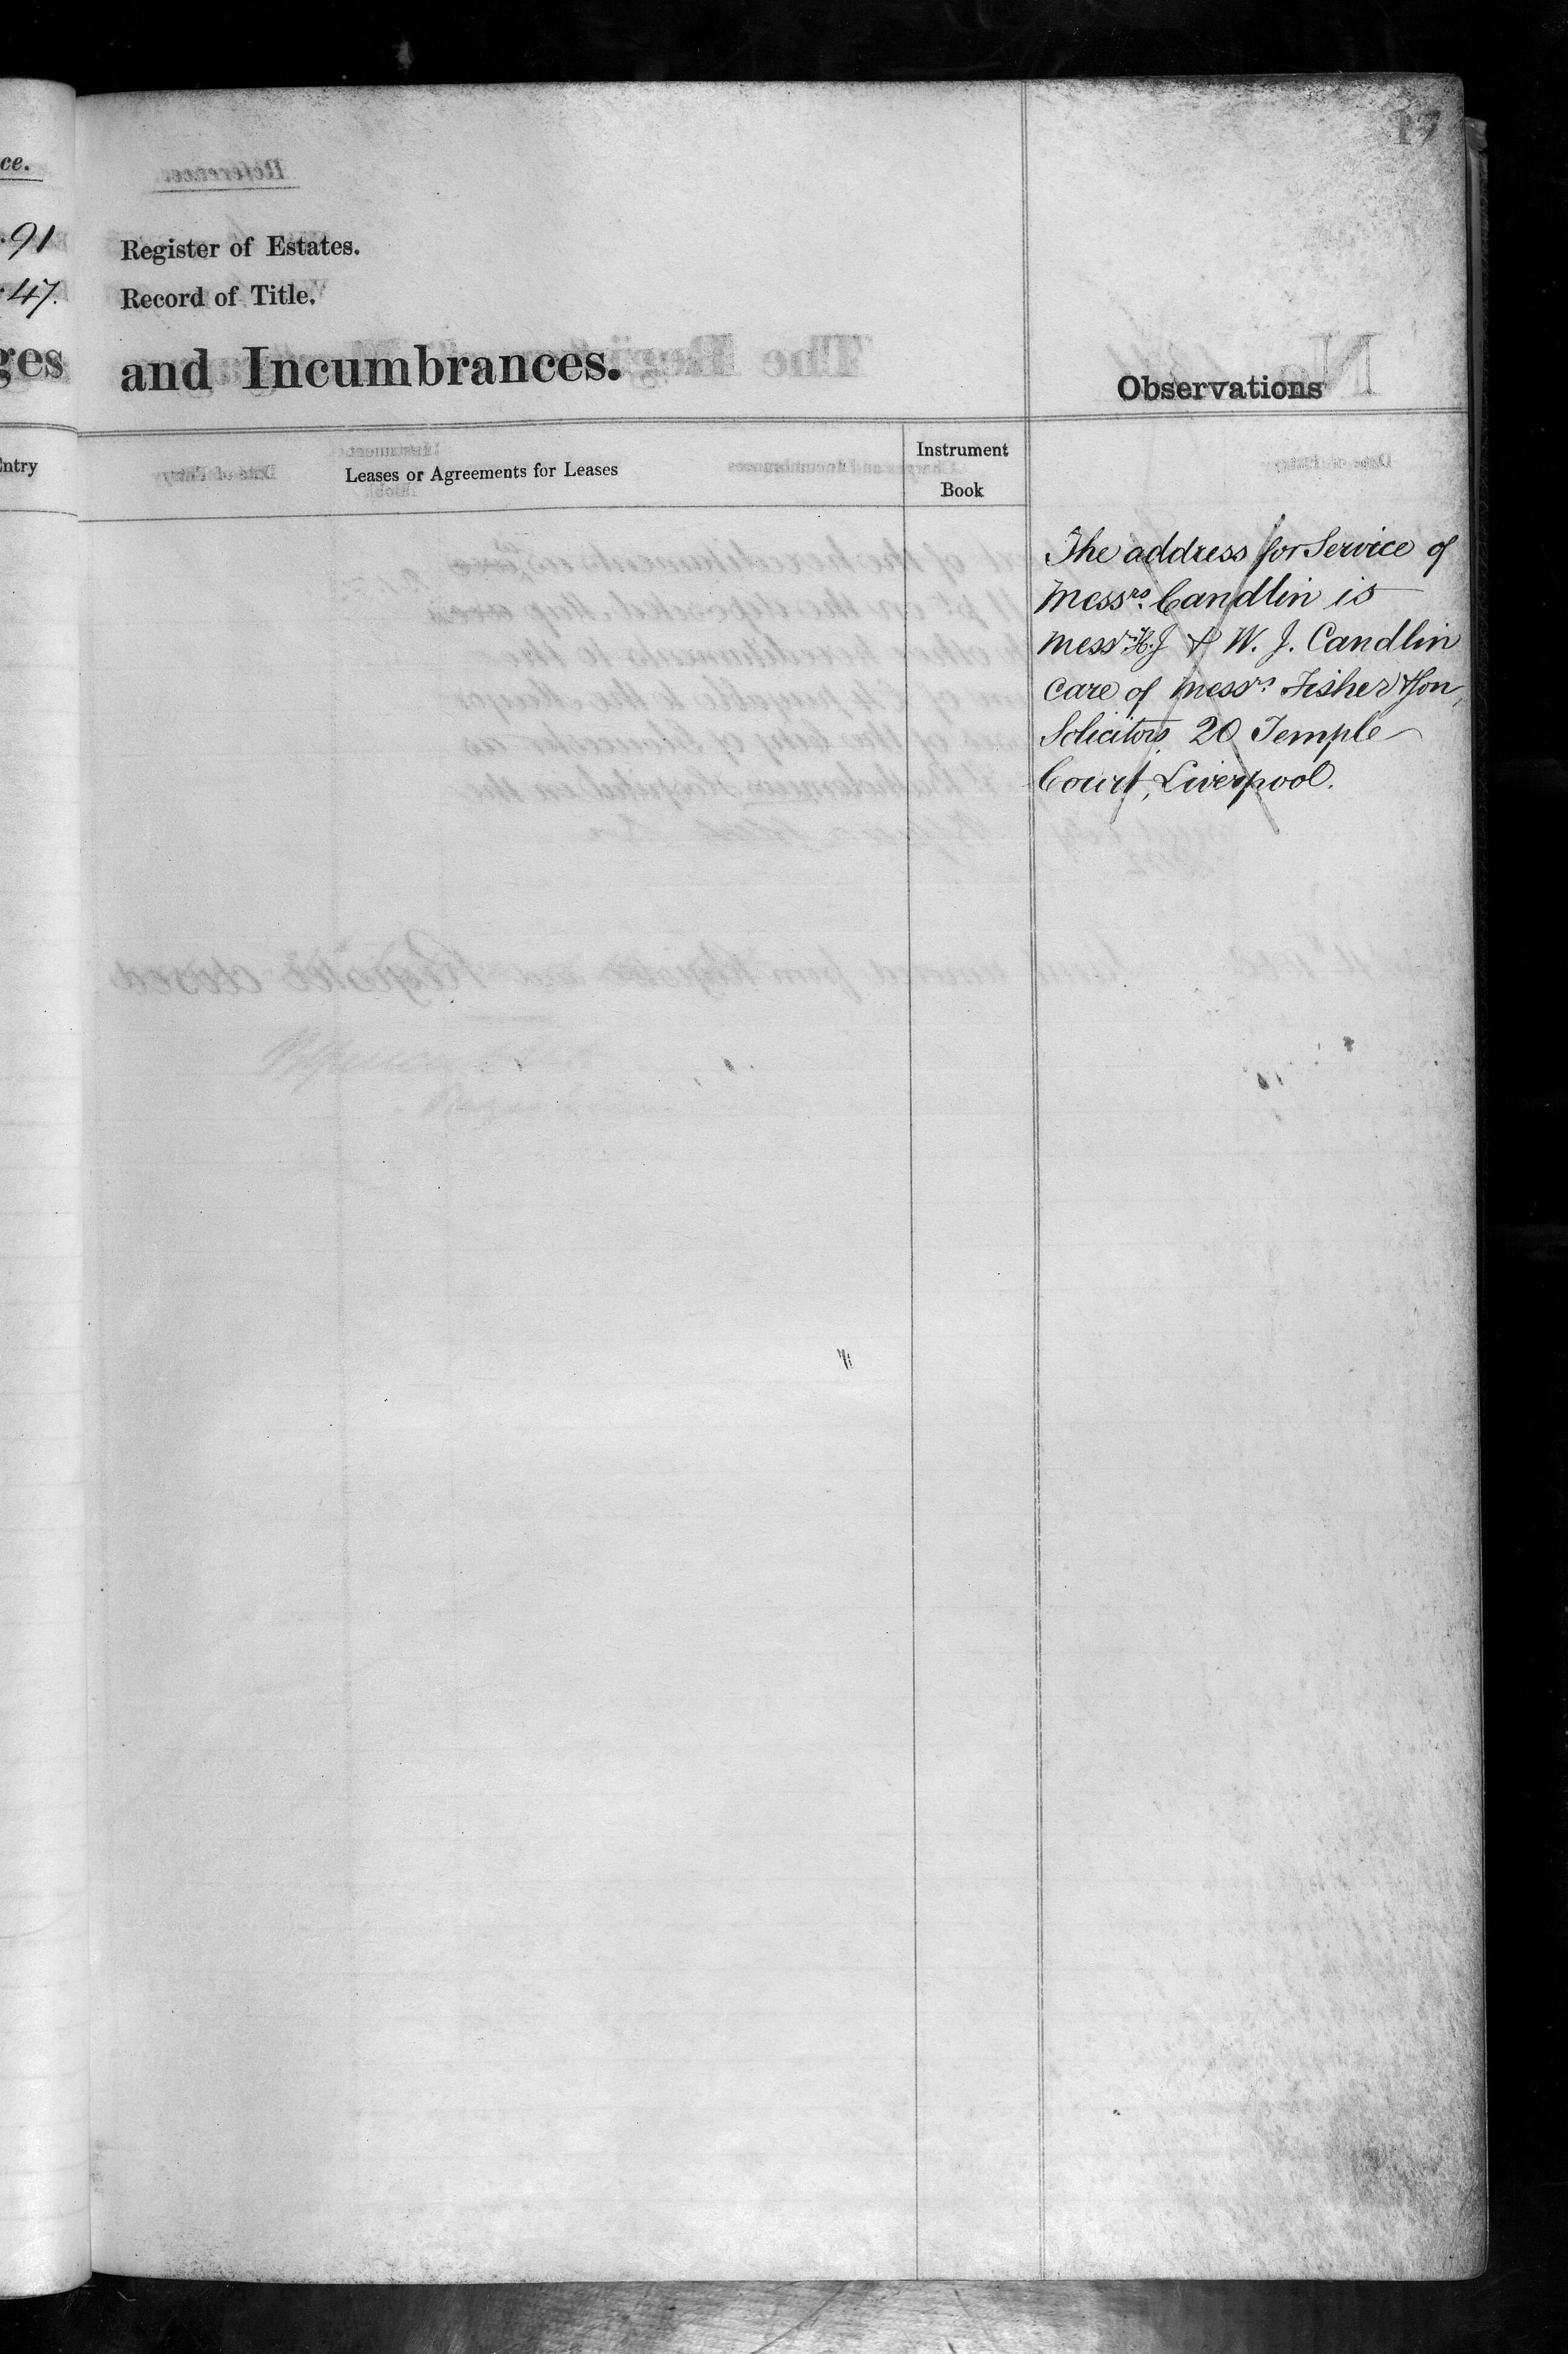 17
ce.
91
Register of Estates.
47.
Record of Title.
ges
and Incumbrances.
Observations
Entry
Leases or Agreements for Leases
Instrument
Book
The address for Service of
Messrs. Candlin is
Messrs H. J & W. J. Candlin
Care of Messrs. Fisher & Son,
Solicitors 20 Temple
Court, Liverpool.